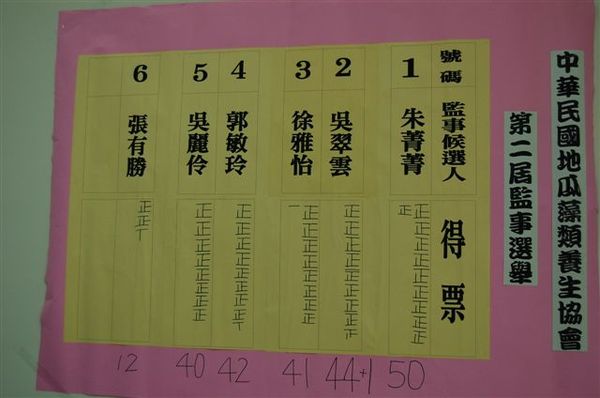 中華民國地瓜藻類養生協會
第二屆監事選舉
號碼 監事候選人 得票
1 朱菁菁 正正正正正正正正正正 50
2 吳翠雲 44+1
3 徐雅怡 正正正正正正正正一 41
4 郭敏玲 正正正正正正正正丅 42
5 吳麗伶 正正正正正正正正 40
6 張有勝 正正丅 12